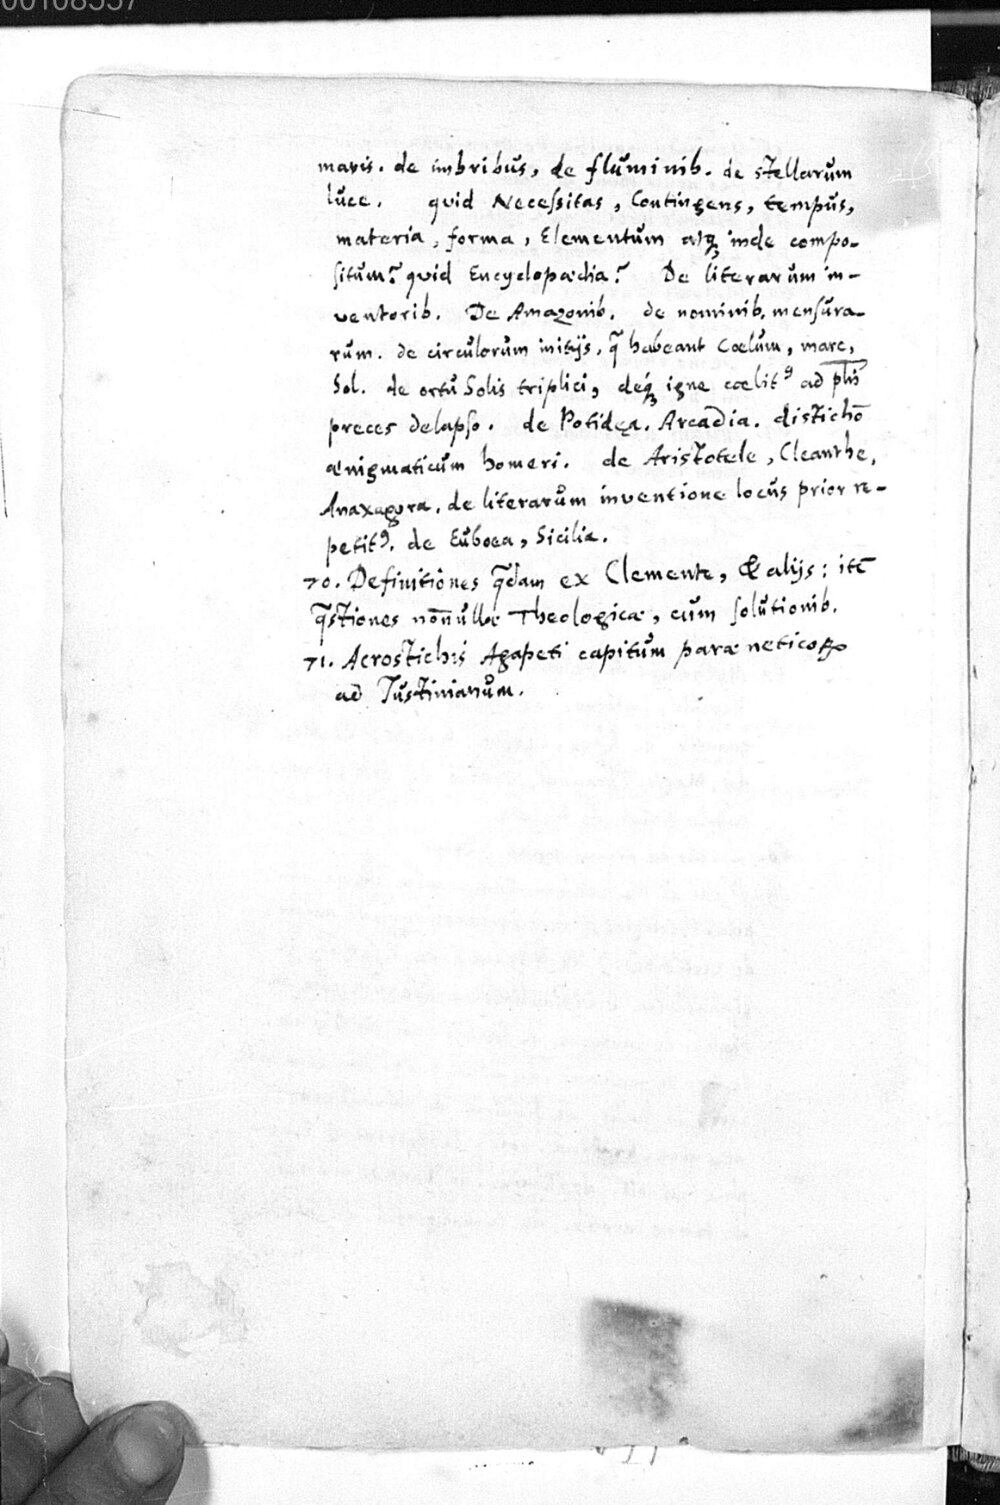 00108557
maris. de imbribus, de fluminib. de stellarum
luce. quid Necessitas, Contingens, tempus,
materia, forma, Elementum atq; inde compo-
situm? quid Encyclopædia? De literarum in-
ventorib. De Amazonib. de nominib. mensura-
rum. de circulorum initijs. q̄ habeant Cœlum, mare,
Sol. de ortu Solis triplici, deq; igne cœlitꝰ ad
preces delapso. de Potidęa. Arcadia. distichō
ænigmaticum homeri. de Aristotele, Cleanthe,
Anaxagora. de literarum inventione locus prior re-
petitꝰ. de Eubœa, Sicilia.
70. Definitiones q̄dam ex Clemente, & alijs: itē
q̄stiones nōnullæ Theologicæ, cum solutionib.
71. Acrostichis Agapeti capitum paræneticoꝝ
ad Iustinianum.